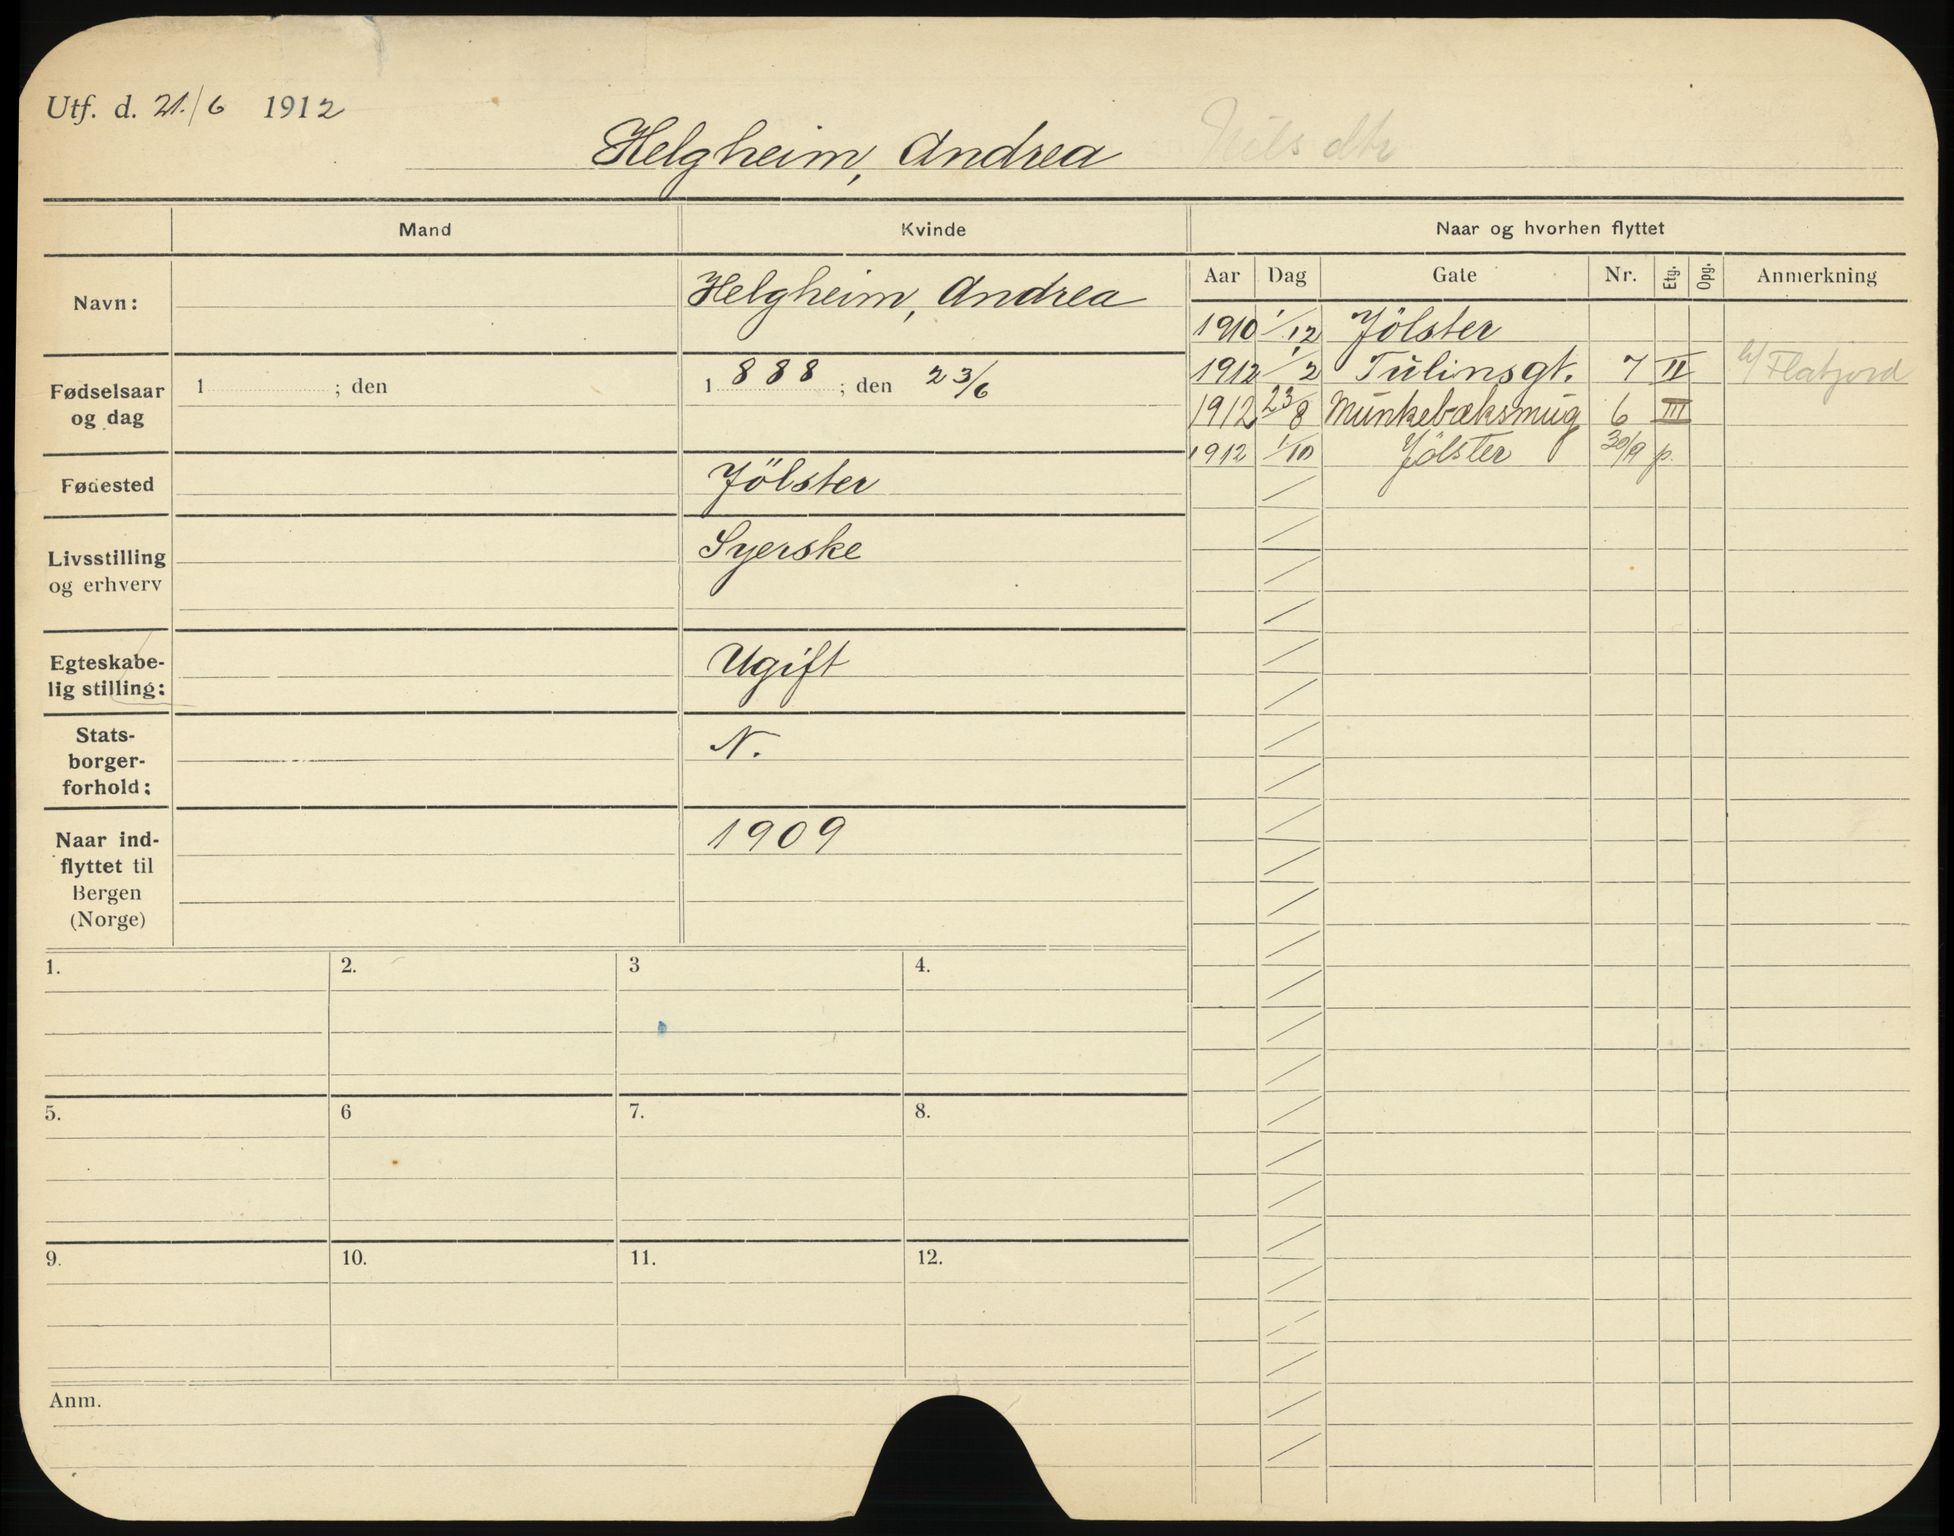 Utf. d. 21./6 1912
Helgheim, Andrea Nils dtr
Mand Kvinde Naar og hvorhen flyttet
Aar Dag Gate Nr. Etg. Opg. Anmerkning
Navn: Helgheim, Andrea
1910 1/12 Jölster
1912 1/2 Tulinsgt. 7 II h/ Flatjord
1912 23/8 Munkebæksmug 6 III
1912 1/10 Jölster 30/9 p.
Fødselsaar og dag 1 ; den 1888 ; den 23/6
Fødested Jölster
Livsstilling og erhverv Syerske
Egteskabe-
lig stilling: Ugift
Stats-
borger-
forhold: N.
Naar ind-
flyttet til
Bergen
(Norge) 1909
1. 2. 3 4.
5. 6 7. 8.
9. 10. 11. 12.
Anm.